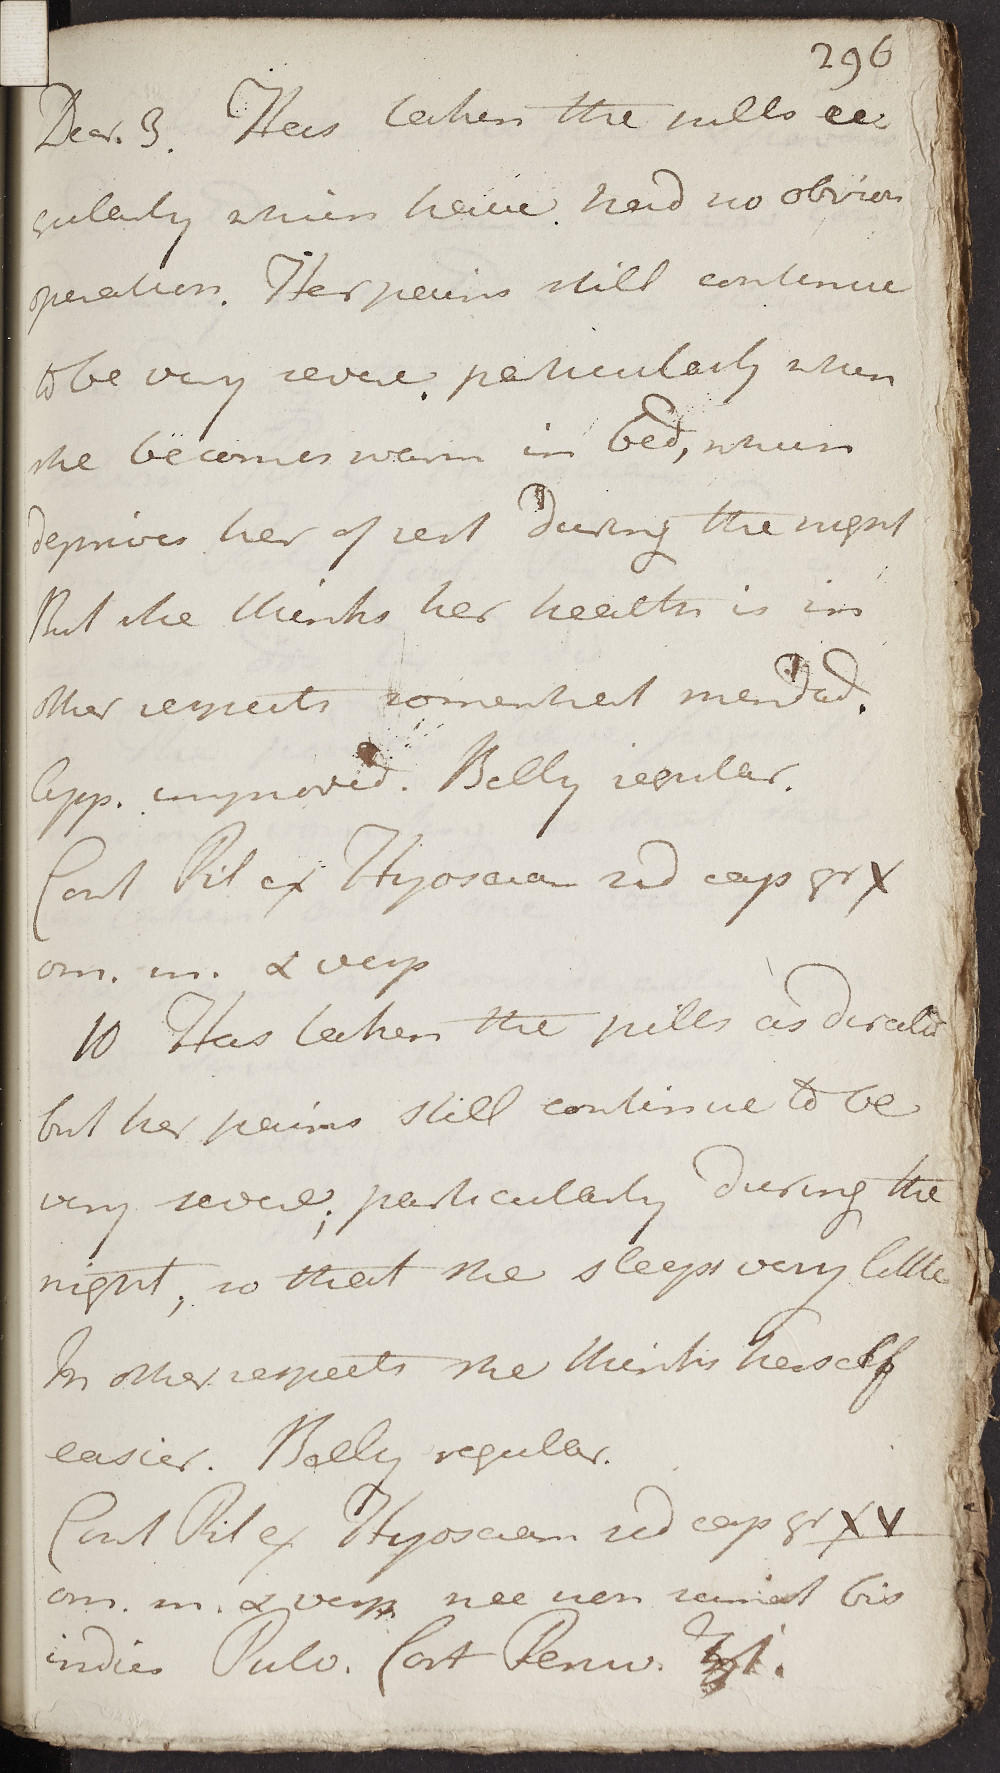 296
Decr. 3. Has taken the pills re
gularly which have had no obvious
operation. Her pains still continue
to be very severe, particularly when
she becomes warm in bed, which
deprives her of rest during the night
But she thinks her health is in
other respects somewhat mended.
App. improved. Belly regular.
Cont Pil ex Hyosciam sed cap gr X
om. m. & vesp
10 Has taken the pills as directed
but her pains still continue to be
very severe, particularly during the
night, so that she sleeps very little
In other respects she thinks herself
easier. Belly regular.
Cont Pil ex Hyosciam sed cap gr XV
om. m. & vesp nec non sumat bis
indies Pulv. Cort Peruv.